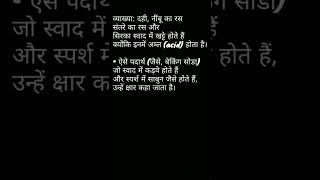 व्याख्या: दही, नींबू का रस
संतरे का रस और
सिरका स्वाद में खट्टे होते हैं
क्योंकि इनमें अम्ल (acid) होता है।
• ऐसे पदार्थ (जैसे, बेकिंग सोडा)
जो स्वाद में कड़वे होते हैं
और स्पर्श में साबुन जैसे होते हैं,
उन्हें क्षार कहा जाता है।